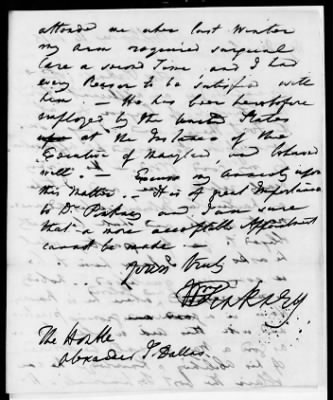 afforded me when last Winter
my arm required surgical
Care a second Time and I had
every Reason to be satisfied with
him — He has been heretofore
employed by the United States
at the Instance of the
Executive of Maryland, and behaved
well. — Excuse my Anxiety upon
this Matter. — It is of great Importance
to Dr. Pinkney and I am sure
that a more acceptable Appointment
cannot be made —
Yours Truly
Wm Pinkney
The Honble
Alexander J. Dallas